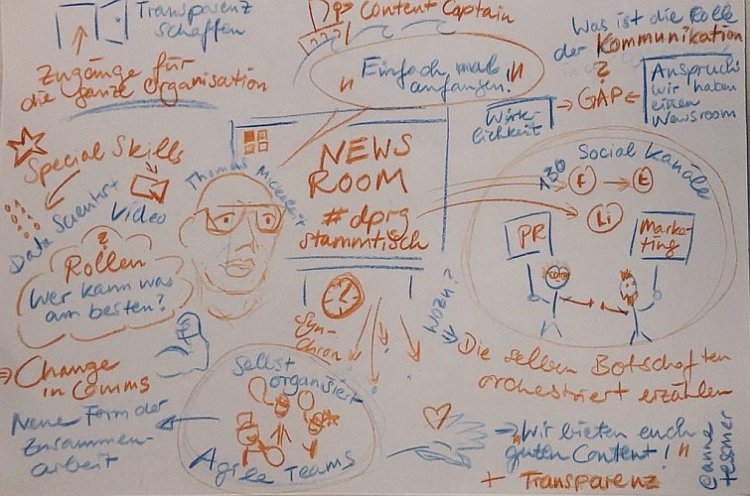 Transparenz
schaffen
Zugänge für
die ganze Organisation
Content Captain
"Einfach mal
anfangen!"
Was ist die Rolle
der Kommunikation
?
Wirk-
lichkeit
→ GAP ←
Anspruch:
wir haben
einen
Newsroom
Special Skills
Data Scientist
Video
?
Rollen
Wer kann was
am besten?
Thomas Mickeleit
NEWS
ROOM
#dprg
stammtisch
Social Kanäle
130
F → E
Li
PR
Marke-
ting
Syn-
chron
Wozu?
Die selben Botschaften
orchestriert erzählen
⇒ Change
in Comms
Neue Form der
Zusammen-
arbeit
Selbst
organisiert
Agile Teams
→ "Wir bieten euch
guten Content!"
+ Transparenz
@anne
tessmer